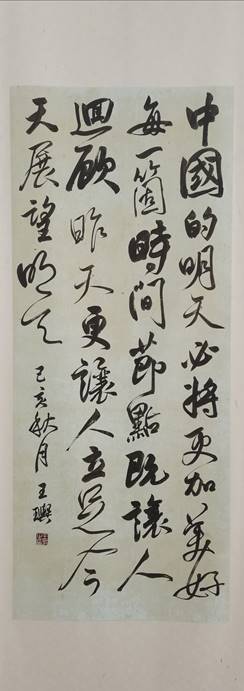 中國的明天必將更加美好
每一箇時間節點既讓人
迴顧昨天更讓人立足今
天展望明天
己亥秋月王璵